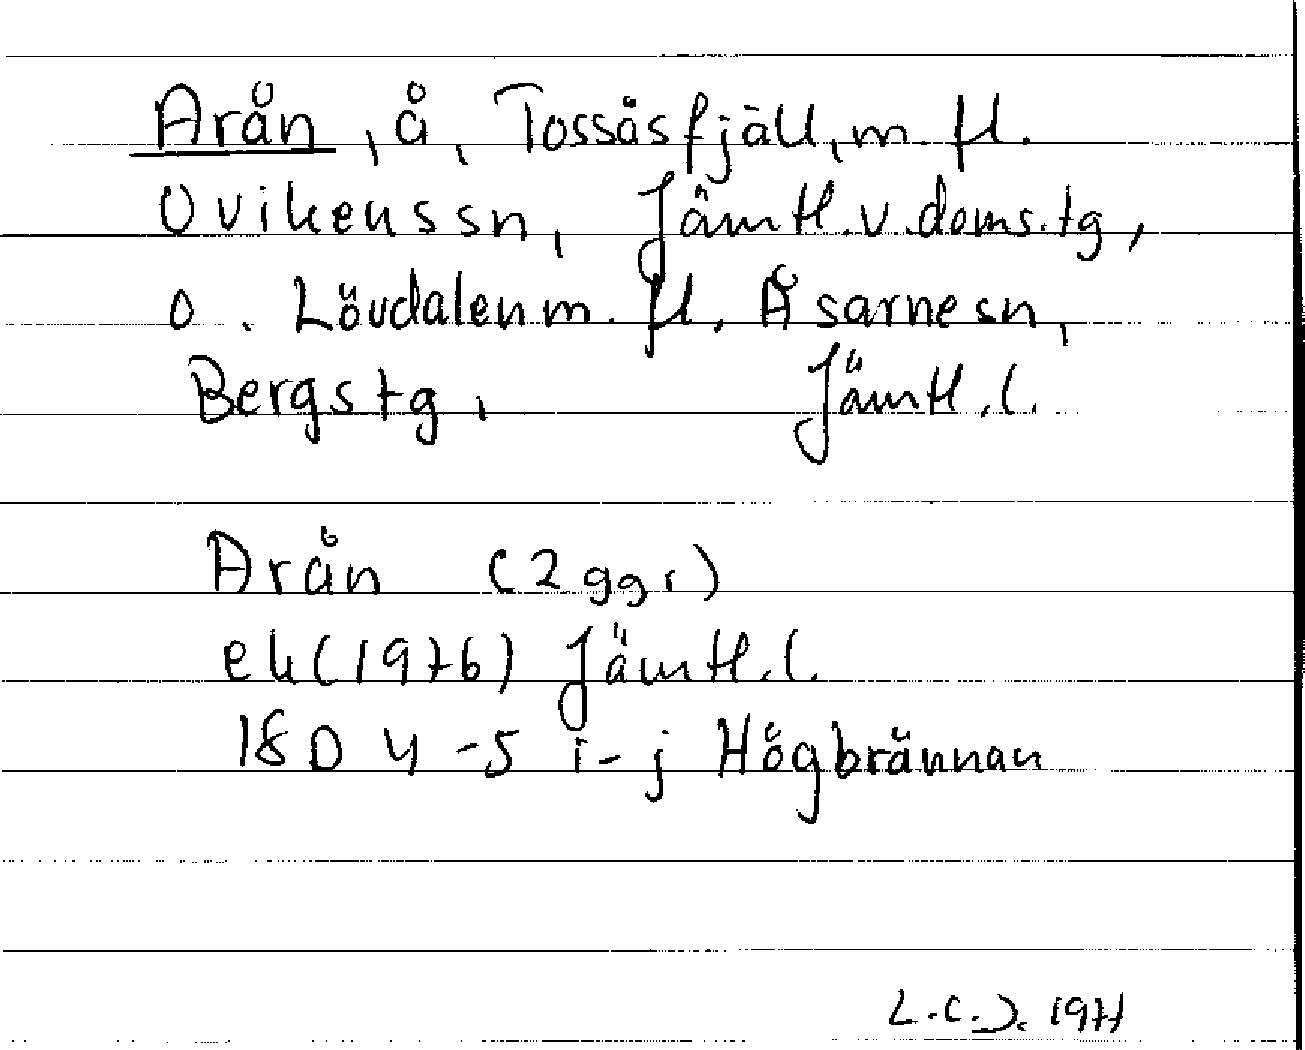 Arån, å, Tossåsfjäll, m. fl.
Ovikens sn, Jämtl. v. doms. tg,
o. Lövdalen m. fl, Åsarne sn,
Bergs tg, Jämtl. l.
Arån (2 ggr)
ek (1976) Jämtl. l.
18 D 4-5 i-j Högbrännan
L.C.J. 1977